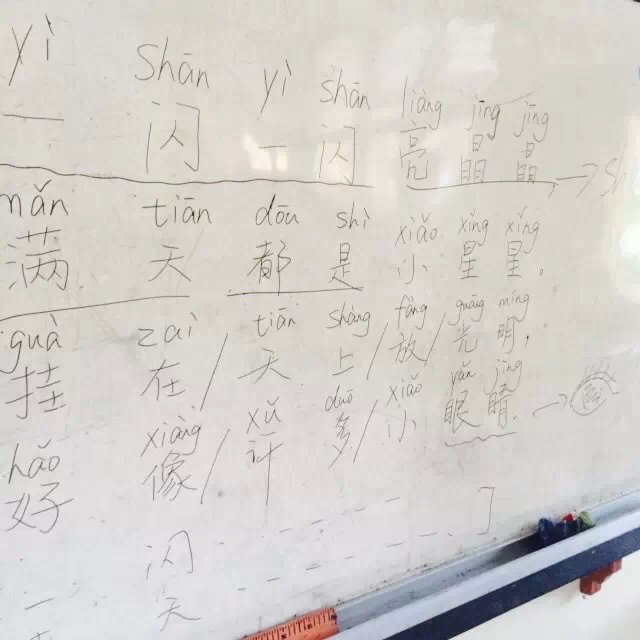 yì Shān yì shān liàng jīng jīng
一 闪 一 闪 亮 晶 晶 → Sh
mǎn tiān dōu shì xiǎo xīng xīng
满 天 都 是 小 星 星。
guà zài tiān shàng fàng guāng míng
挂 在/天 上/放/光 明，
hǎo xiàng xǔ duō xiǎo yǎn jīng
好 像/许 多/小 眼 睛。→
一 闪
天